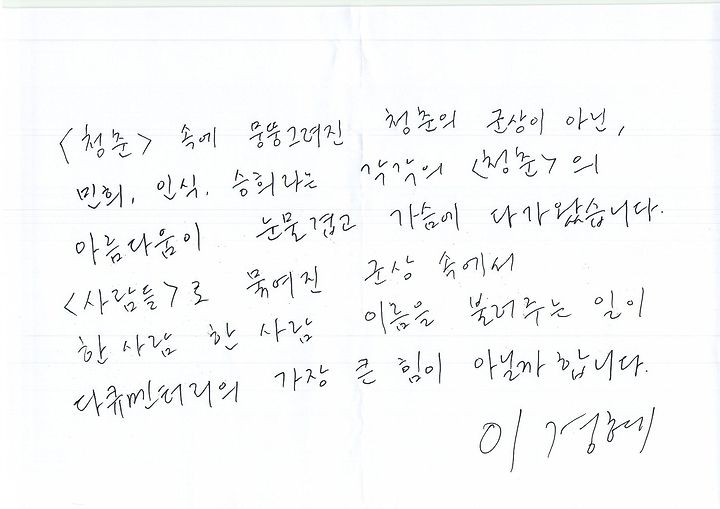 <청춘> 속에 뭉뚱그려진 청춘의 군상이 아닌,
민희, 인식, 승희라는 각각의 <청춘>의
아름다움이 눈물겹고 가슴에 다가왔습니다.
<사람들>로 묶여진 군상 속에서
한 사람 한 사람 이름을 불러주는 일이
다큐멘터리의 가장 큰 힘이 아닐까 합니다.
이경혜